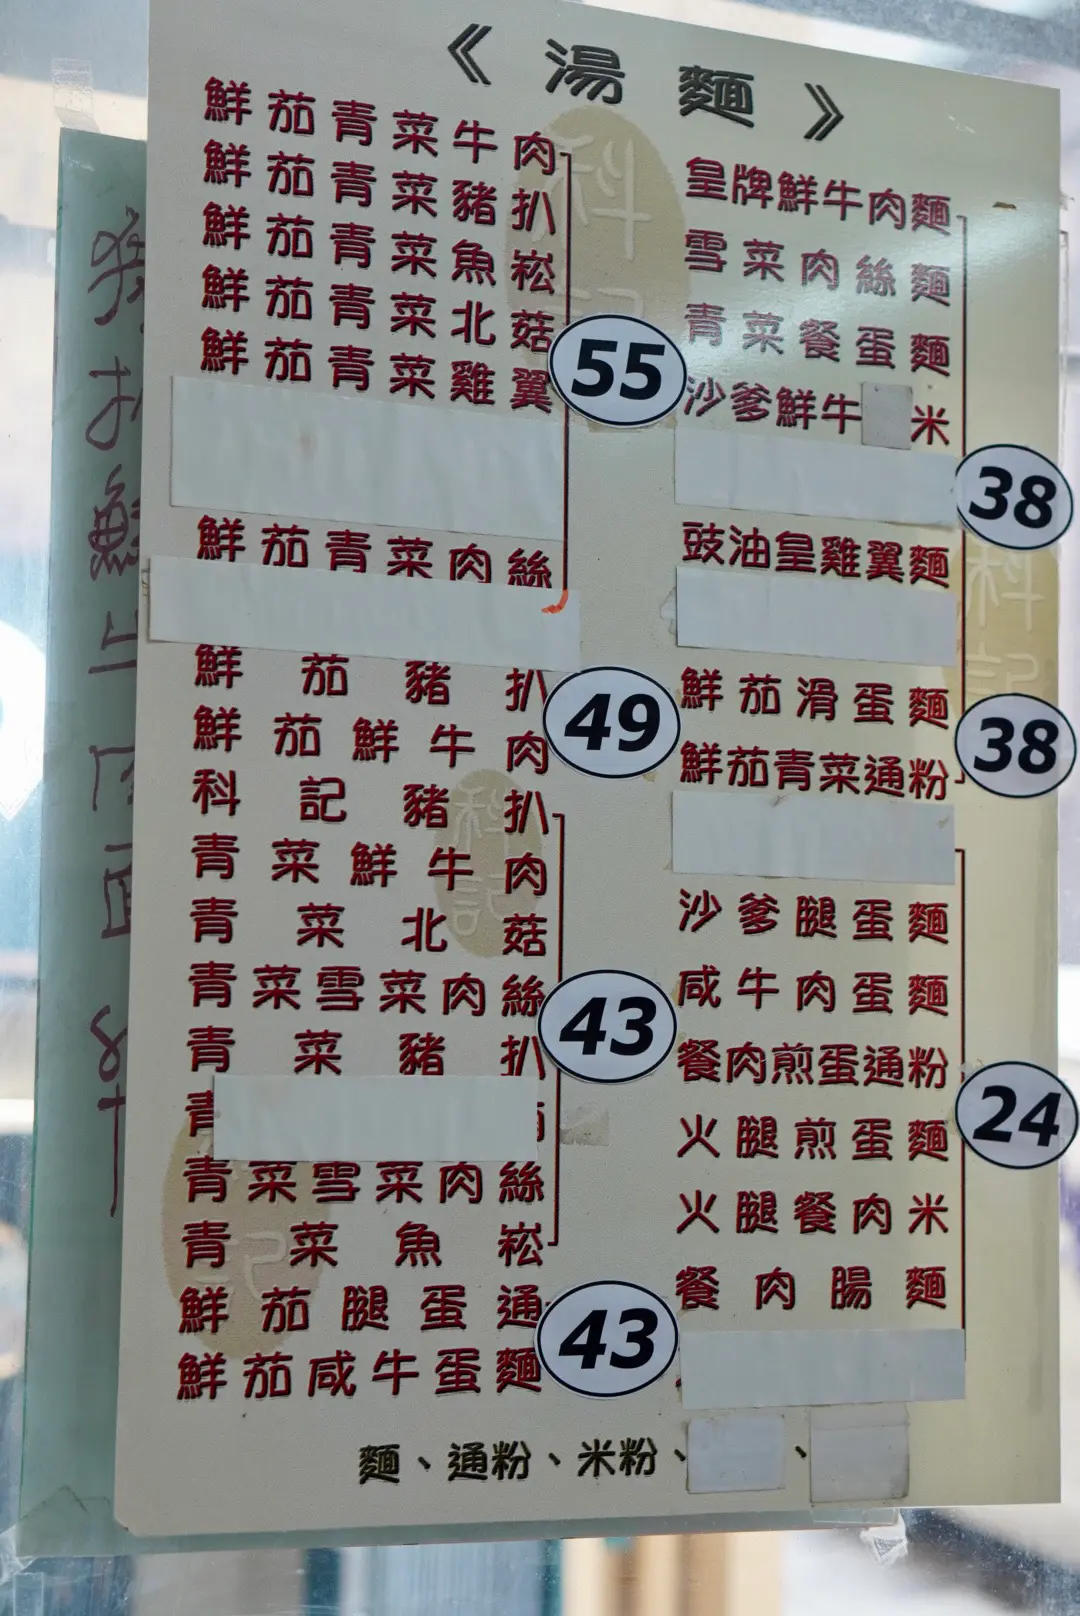 《 湯 麵 》
鮮茄青菜牛肉
鮮茄青菜豬扒
鮮茄青菜魚崧
鮮茄青菜北菇
鮮茄青菜雞翼
55
鮮茄青菜肉絲
鮮茄豬扒
鮮茄鮮牛肉
49
科記豬扒
青菜鮮牛肉
青菜北菇
青菜雪菜肉絲
青菜豬扒
43
青
青菜雪菜肉絲
青菜魚崧
鮮茄腿蛋通
鮮茄咸牛蛋麵
43
皇牌鮮牛肉麵
雪菜肉絲麵
青菜餐蛋麵
沙爹鮮牛 米
38
豉油皇雞翼麵
鮮茄滑蛋麵
鮮茄青菜通粉
38
沙爹腿蛋麵
咸牛肉蛋麵
餐肉煎蛋通粉
火腿煎蛋麵
火腿餐肉米
餐肉腸麵
24
麵、通粉、米粉、 、